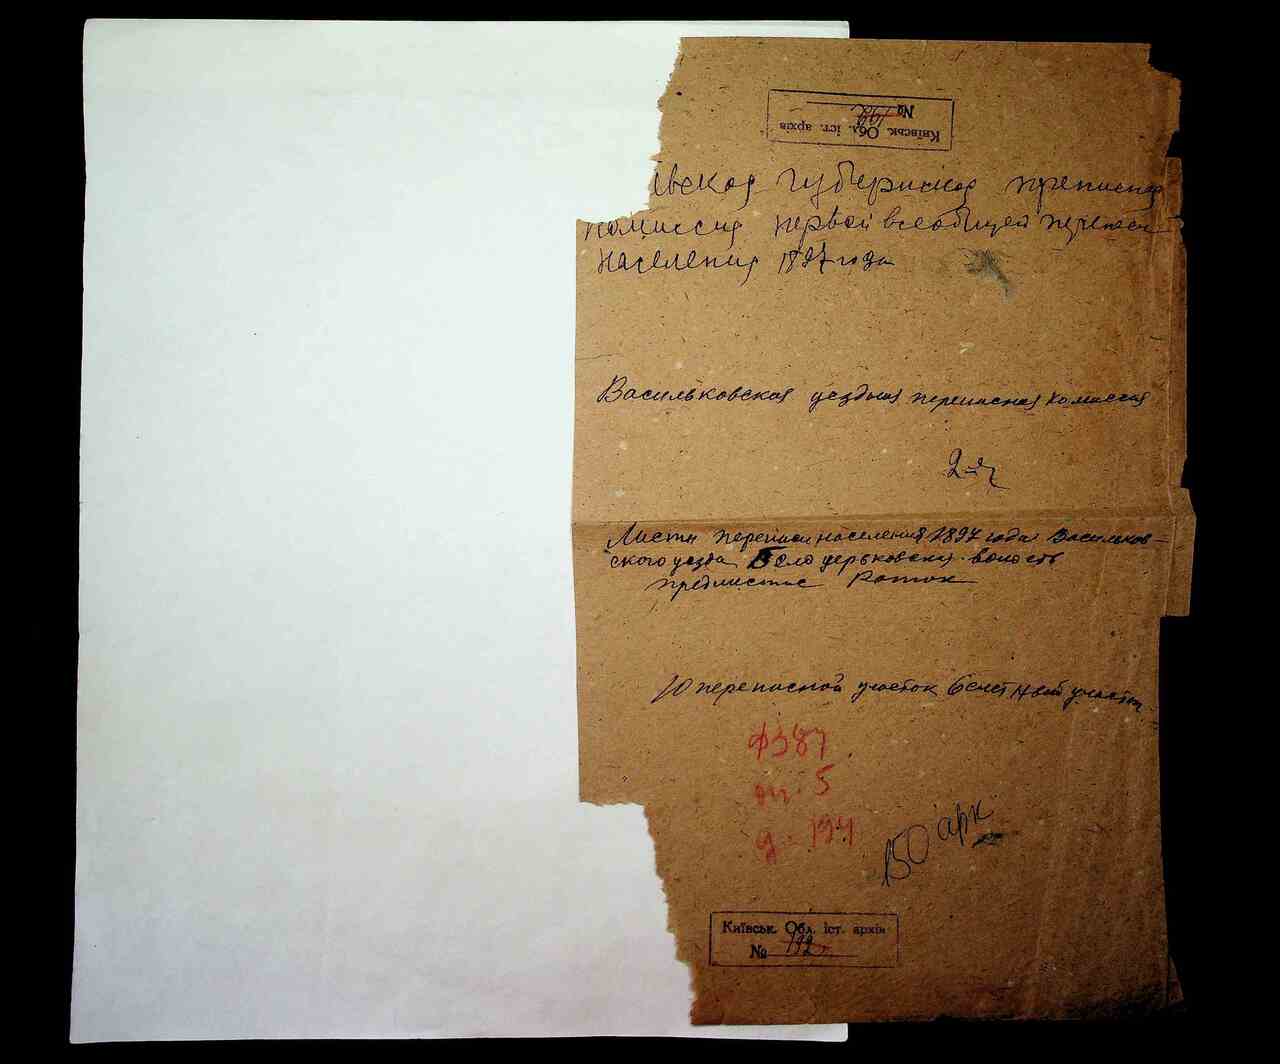 Київськ. Обл. іст. архів
№ 192
івская губернская переписная
комиссия первой всеобщей переписи
населения 1897 года
Васильковская уездная переписная комиссия
2=я
Листы переписи населения 1897 года Васильков-
ского уезда Белоцерковская волость
предместье Роток
10 переписной участок 6 счетный участок
ф 387
оп. 5
д. 194
150 арк
Київськ. Обл. іст. архів
№ 192